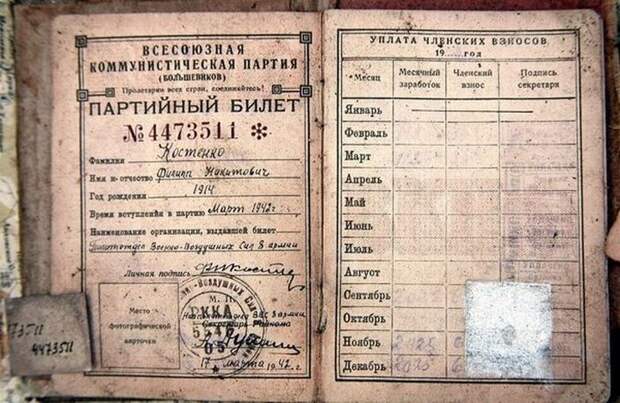 ВСЕСОЮЗНАЯ
КОММУНИСТИЧЕСКАЯ ПАРТИЯ
(БОЛЬШЕВИКОВ)
Пролетарии всех стран, соединяйтесь!
ПАРТИЙНЫЙ БИЛЕТ
№ 4473511 ✻
Фамилия Костенко
Имя и отчество Филипп Никитович
Год рождения 1914
Время вступления в партию Март 1942 г.
Наименование организации, выдавшей билет
Политотдел Военно-Воздушных Сил 8 армии
Личная подпись
М. П.
ВВС 8 армии
Секретарь Райкома
17 марта 1942 г.
Место
фотографической
карточки
РККА
4473511
УПЛАТА ЧЛЕНСКИХ ВЗНОСОВ
19 год
Месяц
Месячный заработок
Членский взнос
Подпись секретаря
Январь
Февраль
Март
Апрель
Май
Июнь
Июль
Август
Сентябрь
Октябрь
Ноябрь
Декабрь